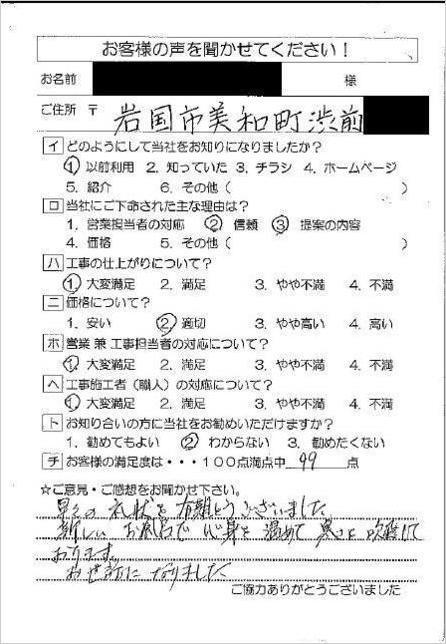 お客様の声を聞かせてください！
お名前 様
ご住所 〒 岩国市美和町渋前
イ どのようにして当社をお知りになりましたか？
① 以前利用 2. 知っていた 3. チラシ 4. ホームページ
5. 紹介 6. その他（ ）
ロ 当社にご下命された主な理由は？
1. 営業担当者の対応 ② 信頼 ③ 提案の内容
4. 価格 5. その他（ ）
ハ 工事の仕上がりについて？
① 大変満足 2. 満足 3. やや不満 4. 不満
ニ 価格について？
1. 安い ② 適切 3. やや高い 4. 高い
ホ 営業 兼 工事担当者の対応について？
① 大変満足 2. 満足 3. やや不満 4. 不満
ヘ 工事施工者（職人）の対応について？
① 大変満足 2. 満足 3. やや不満 4. 不満
ト お知り合いの方に当社をお勧めいただけますか？
1. 勧めてもよい ② わからない 3. 勧めたくない
チ お客様の満足度は・・・100点満点中 99 点
☆ご意見・ご感想をお聞かせ下さい。
早々の礼状を有難とうございました
新しいお風呂で心身を温めて寒さを吹飛して
おります。
お世話になりました
ご協力ありがとうございました